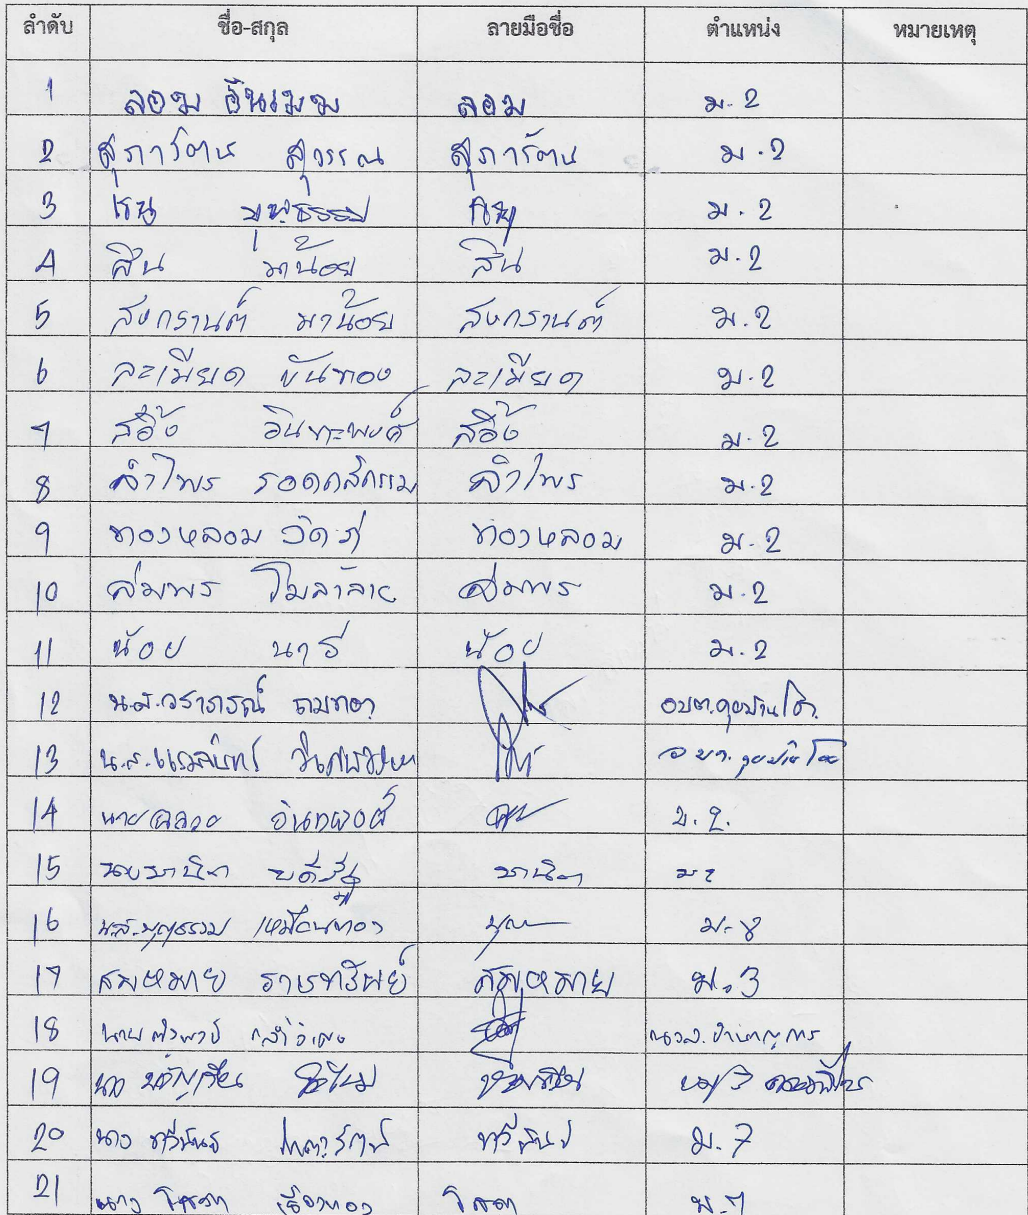 ลำดับ ชื่อ-สกุล ลายมือชื่อ ตำแหน่ง หมายเหตุ
1 ลอม อินเมฆ ลอม ม.2
2 สุภารัตน สุวรรณ สุภารัตน ม.2
3 เรนู ม.2
4 สิน มาน้อย สิน ม.2
5 สงกรานต์ มาน้อย สงกรานต์ ม.2
6 ละเมียด ขันทอง ละเมียด ม.2
7 สอิ้ง อินทะพงศ์ สอิ้ง ม.2
8 ลำไพร รอดกสิกรรม ลำไพร ม.2
9 ทองหลอม ทองหลอม ม.2
10 สมพร โมลาลาย สมพร ม.2
11 น้อย นารี น้อย ม.2
12 น.ส.วราภรณ์ อบต.คุยบ้านโอง
13 น.ส.
14 นายฉลวย อินทพงศ์ ม.2.
15 นายมานิต มานิต ม2
16 น.ส.บุญธรรม เหมือนทอง บุญ ม.8
17 สมหมาย ธารทรัพย์ สมหมาย ม.3
18 นาย
19 นาง
20 นาง ทวีนันธ์ ม.7
21 นาง โสภา เรืองทอง โสภา ม.7